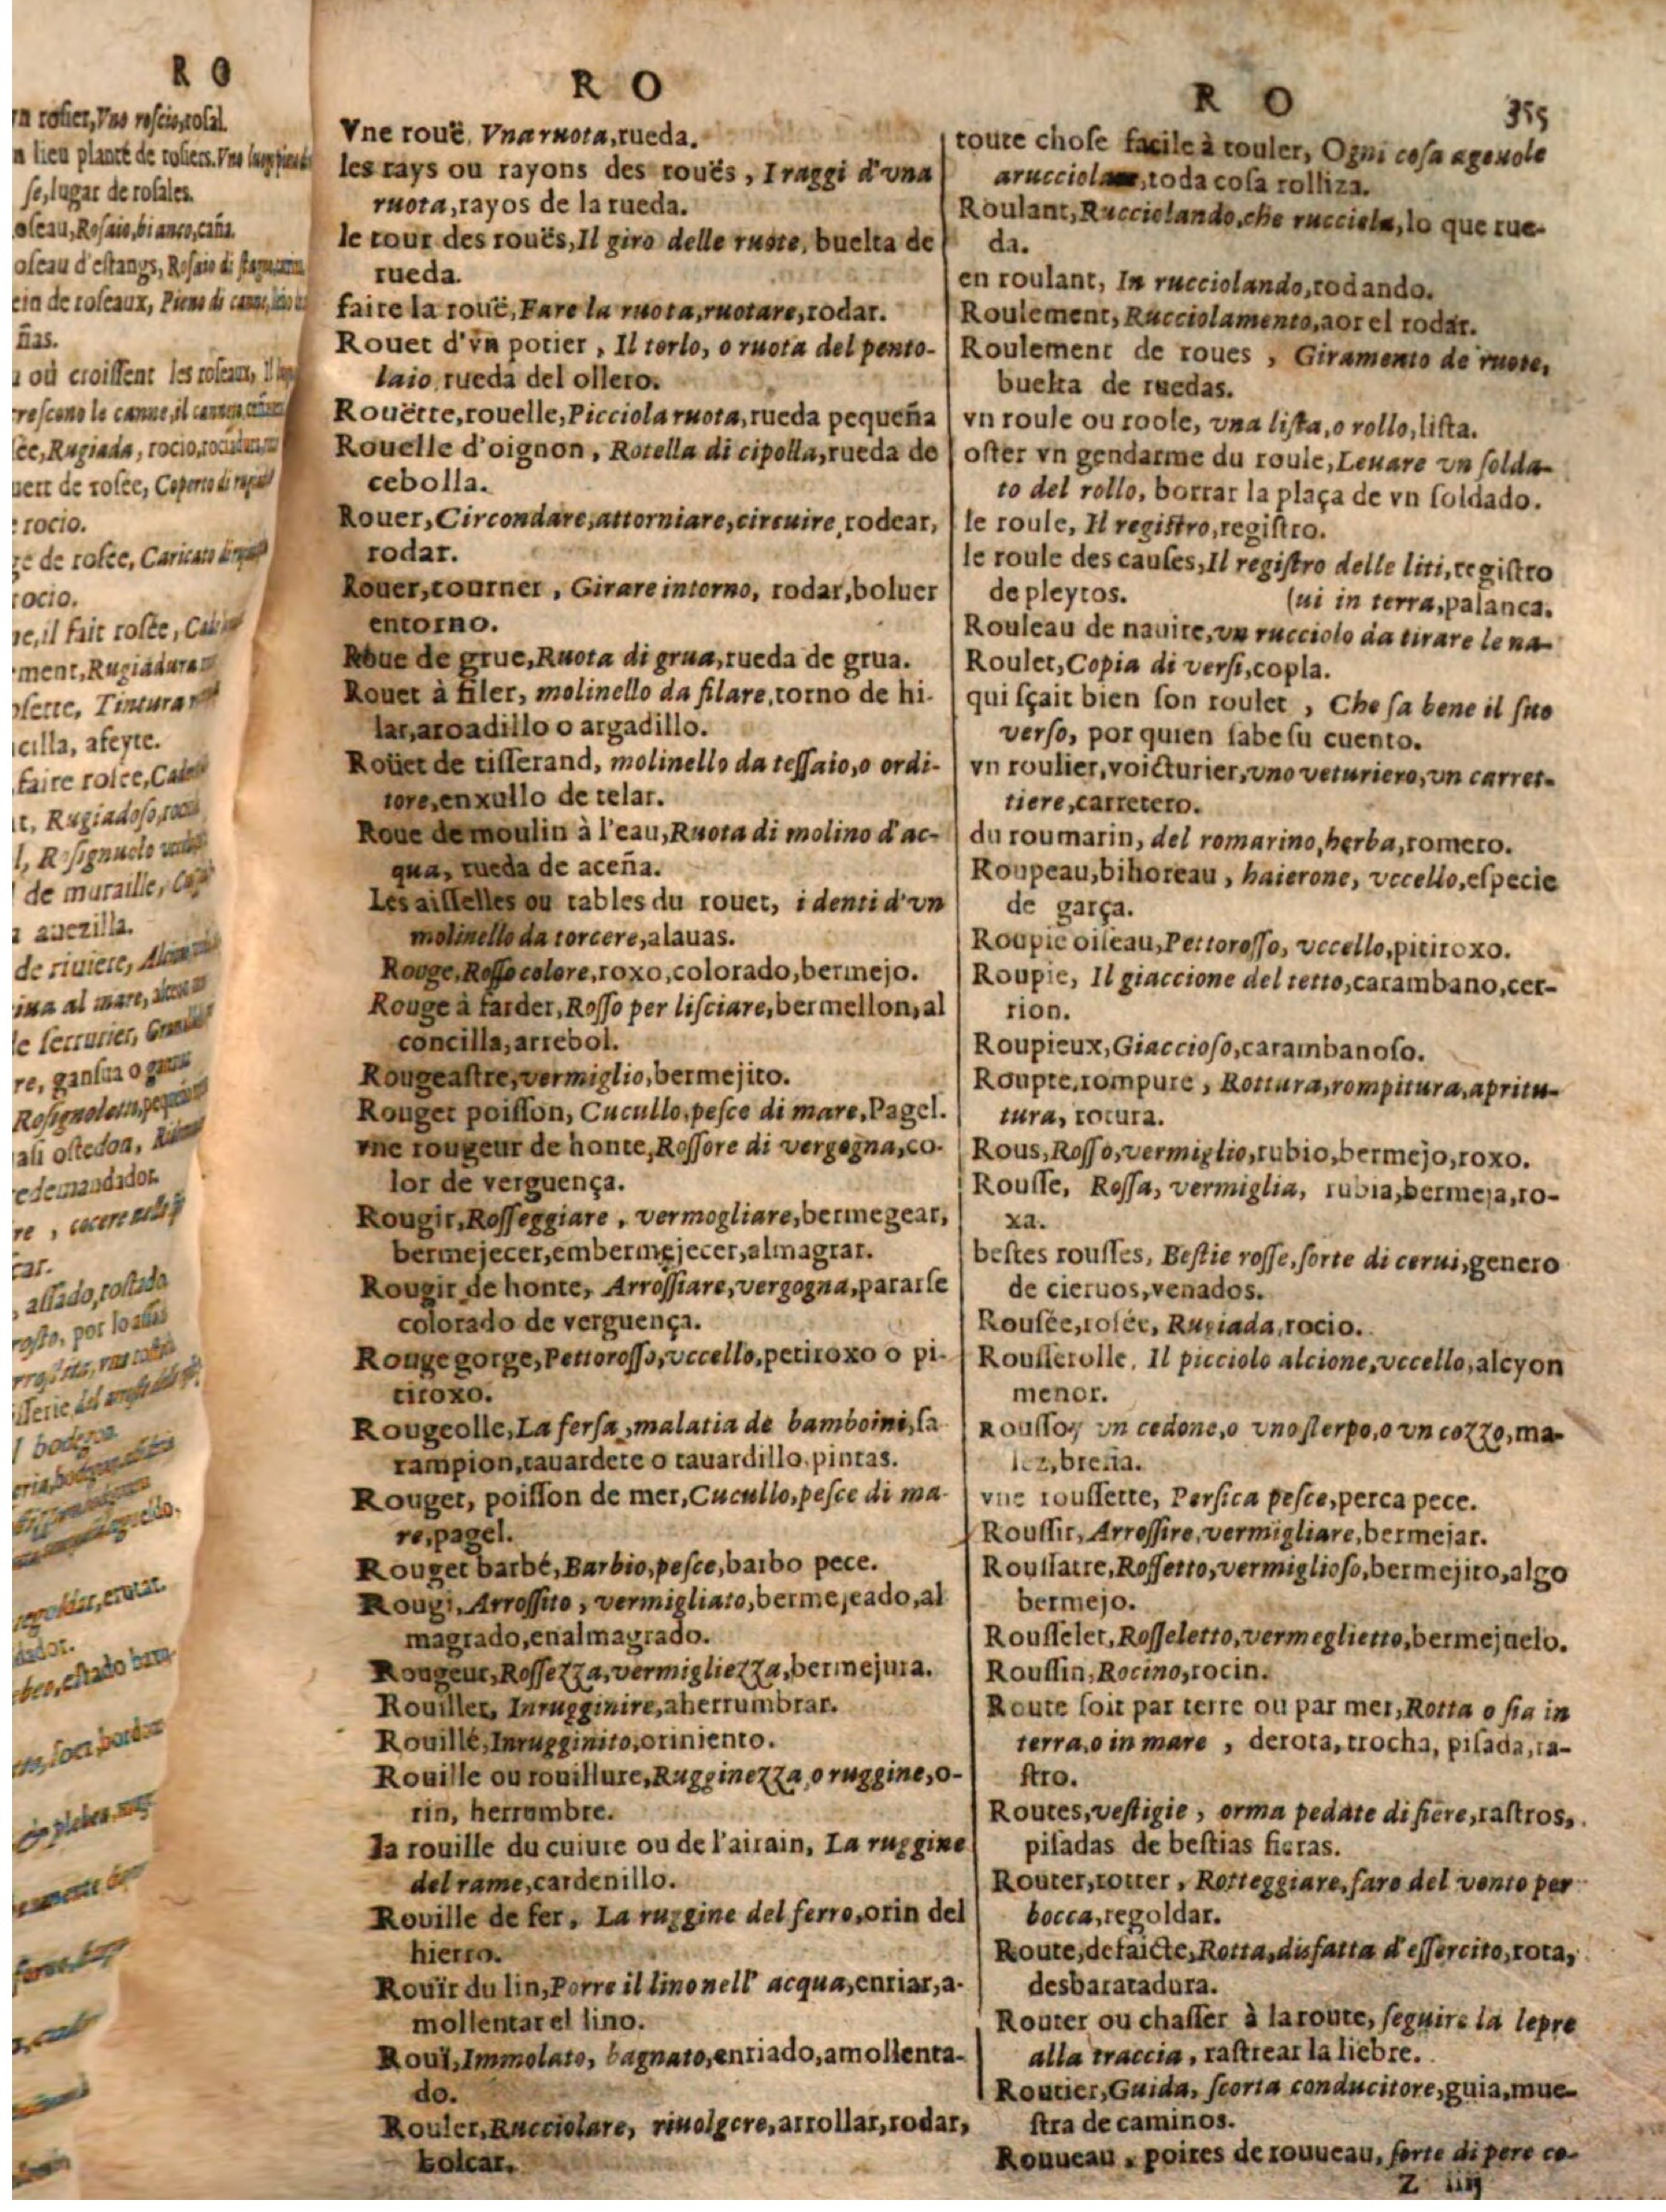 R O
rosier, Vno roscio, rosal.
lieu planté de rosiers. Vno
se, lugar de rosales.
oseau, Rosaio, bianco, caña.
oseau d'estangs, Rosaio di
de roseaux, Pieno di canne,
ñas.
où croissent les roseaux, Il
crescono le canne, il
Rugiada, rocio,
de rosée, Coperto di
rocio.
de rosée, Caricato
rocio.
il fait rosée,
Rugiadura
Tintura
cilla, afeyte.
faire rosée,
Rugiadoso,
Rosignuolo
de muraille,
auezilla.
de riuiere,
al mare,
serrurier,
re, gansua o
ali ostedon,
assado, rostado
R O
Vne rouë, Vna ruota, rueda.
les rays ou rayons des rouës, I raggi d'vna
ruota, rayos de la rueda.
le tour des rouës, Il giro delle ruote, buelta de
rueda.
faire la rouë, Fare la ruota, ruotare, rodar.
Rouet d'vn potier, Il torlo, o ruota del pento-
laio, rueda del ollero.
Rouëtte, rouelle, Picciola ruota, rueda pequeña
Rouelle d'oignon, Rotella di cipolla, rueda de
cebolla.
Rouer, Circondare, attorniare, circuire, rodear,
rodar.
Rouer, tourner, Girare intorno, rodar, boluer
entorno.
Roue de grue, Ruota di grua, rueda de grua.
Rouet à filer, molinello da filare, torno de hi-
lar, aroadillo o argadillo.
Roüet de tisserand, molinello da tessaio, o ordi-
tore, enxullo de telar.
Roue de moulin à l'eau, Ruota di molino d'ac-
qua, rueda de aceña.
Les aisselles ou tables du rouet, i denti d'vn
molinello da torcere, alauas.
Rouge, Rosso colore, roxo, colorado, bermejo.
Rouge à farder, Rosso per lisciare, bermellon, al
concilla, arrebol.
Rougeastre, vermiglio, bermejito.
Rouget poisson, Cucullo, pesce di mare, Pagel.
vne rougeur de honte, Rossore di vergogna, co-
lor de verguença.
Rougir, Rosseggiare, vermogliare, bermegear,
bermejecer, embermejecer, almagrar.
Rougir de honte, Arrossiare, vergogna, pararse
colorado de verguença.
Rouge gorge, Pettorosso, vccello, petiroxo o pi-
tiroxo.
Rougeolle, La fersa, malatia de bamboini, sa
rampion, tauardete o tauardillo, pintas.
Rouget, poisson de mer, Cucullo, pesce di ma-
re, pagel.
Rouget barbé, Barbio, pesce, barbo pece.
Rougi, Arrossito, vermigliato, bermejeado, al
magrado, enalmagrado.
Rougeur, Rossezza, vermigliezza, bermejura.
Rouiller, Inrugginire, aherrumbrar.
Rouillé, Inrugginito, oriniento.
Rouille ou rouillure, Rugginezza, o ruggine, o-
rin, herrumbre.
la rouille du cuiure ou de l'airain, La ruggine
del rame, cardenillo.
Rouille de fer, La ruggine del ferro, orin del
hierro.
Rouïr du lin, Porre il lino nell' acqua, enriar, a-
mollentar el lino.
Rouï, Immolato, bagnato, enriado, amollenta-
do.
Rouler, Rucciolare, riuolgere, arrollar, rodar,
bolcar.
R O 355
toute chose facile à rouler, Ogni cosa ageuole
a rucciolare, toda cosa rolliza.
Roulant, Rucciolando, che rucciola, lo que rue-
da.
en roulant, In rucciolando, rodando.
Roulement, Rucciolamento, aor el rodar.
Roulement de roues, Giramento de ruote,
buelta de ruedas.
vn roule ou roole, vna lista, o rollo, lista.
oster vn gendarme du roule, Leuare vn solda-
to del rollo, borrar la plaça de vn soldado.
le roule, Il registro, registro.
le roule des causes, Il registro delle liti, registro
de pleytos. (ui in terra, palanca.
Rouleau de nauire, vn rucciolo da tirare le na-
Roulet, Copia di versi, copla.
qui sçait bien son roulet, Che sa bene il suo
verso, por quien sabe su cuento.
vn roulier, voicturier, vno veturiero, vn carret-
tiere, carretero.
du roumarin, del romarino, herba, romero.
Roupeau, bihoreau, haierone, vccello, especie
de garça.
Roupie oiseau, Pettorosso, vccello, pitiroxo.
Roupie, Il giaccione del tetto, carambano, cer-
rion.
Roupieux, Giaccioso, carambanoso.
Roupte, rompure, Rottura, rompitura, apritu-
tura, rotura.
Rous, Rosso, vermiglio, rubio, bermejo, roxo.
Rousse, Rossa, vermiglia, rubia, bermeja, ro-
xa.
bestes rousses, Bestie rosse, sorte di cerui, genero
de cieruos, venados.
Rousée, rosée, Rugiada, rocio.
Rousserolle, Il picciolo alcione, vccello, alcyon
menor.
Roussoy vn cedone, o vno sterpo, o vn cozzo, ma-
lez, breña.
vne roussette, Persica pesce, perca pece.
Roussir, Arrossire, vermigliare, bermejar.
Roussatre, Rossetto, vermiglioso, bermejito, algo
bermejo.
Rousselet, Rosseletto, vermeglietto, bermejuelo.
Roussin, Rocino, rocin.
Route soit par terre ou par mer, Rotta o sia in
terra, o in mare, derota, trocha, pisada, ra-
stro.
Routes, vestigie, orma pedate di fiere, rastros,
pisadas de bestias fieras.
Router, rotter, Rotteggiare, fare del vento per
bocca, regoldar.
Route, defaicte, Rotta, disfatta d'essercito, rota,
desbaratadura.
Router ou chasser à la route, seguire la lepre
alla traccia, rastrear la liebre.
Routier, Guida, scorta conducitore, guia, mue-
stra de caminos.
Rouueau, poires de rouueau, sorte di pere co-
Z iiij